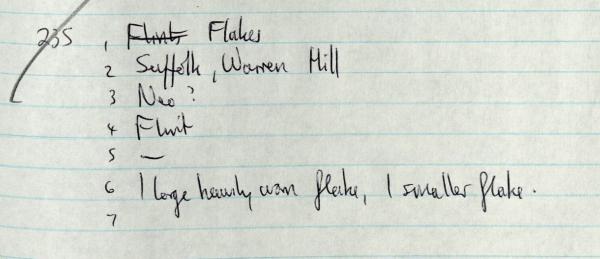 235 1 Flints Flakes
2 Suffolk, Warren Hill
3 Neo?
4 Flint
5 —
6 1 large heavily worn flake, 1 smaller flake.
7